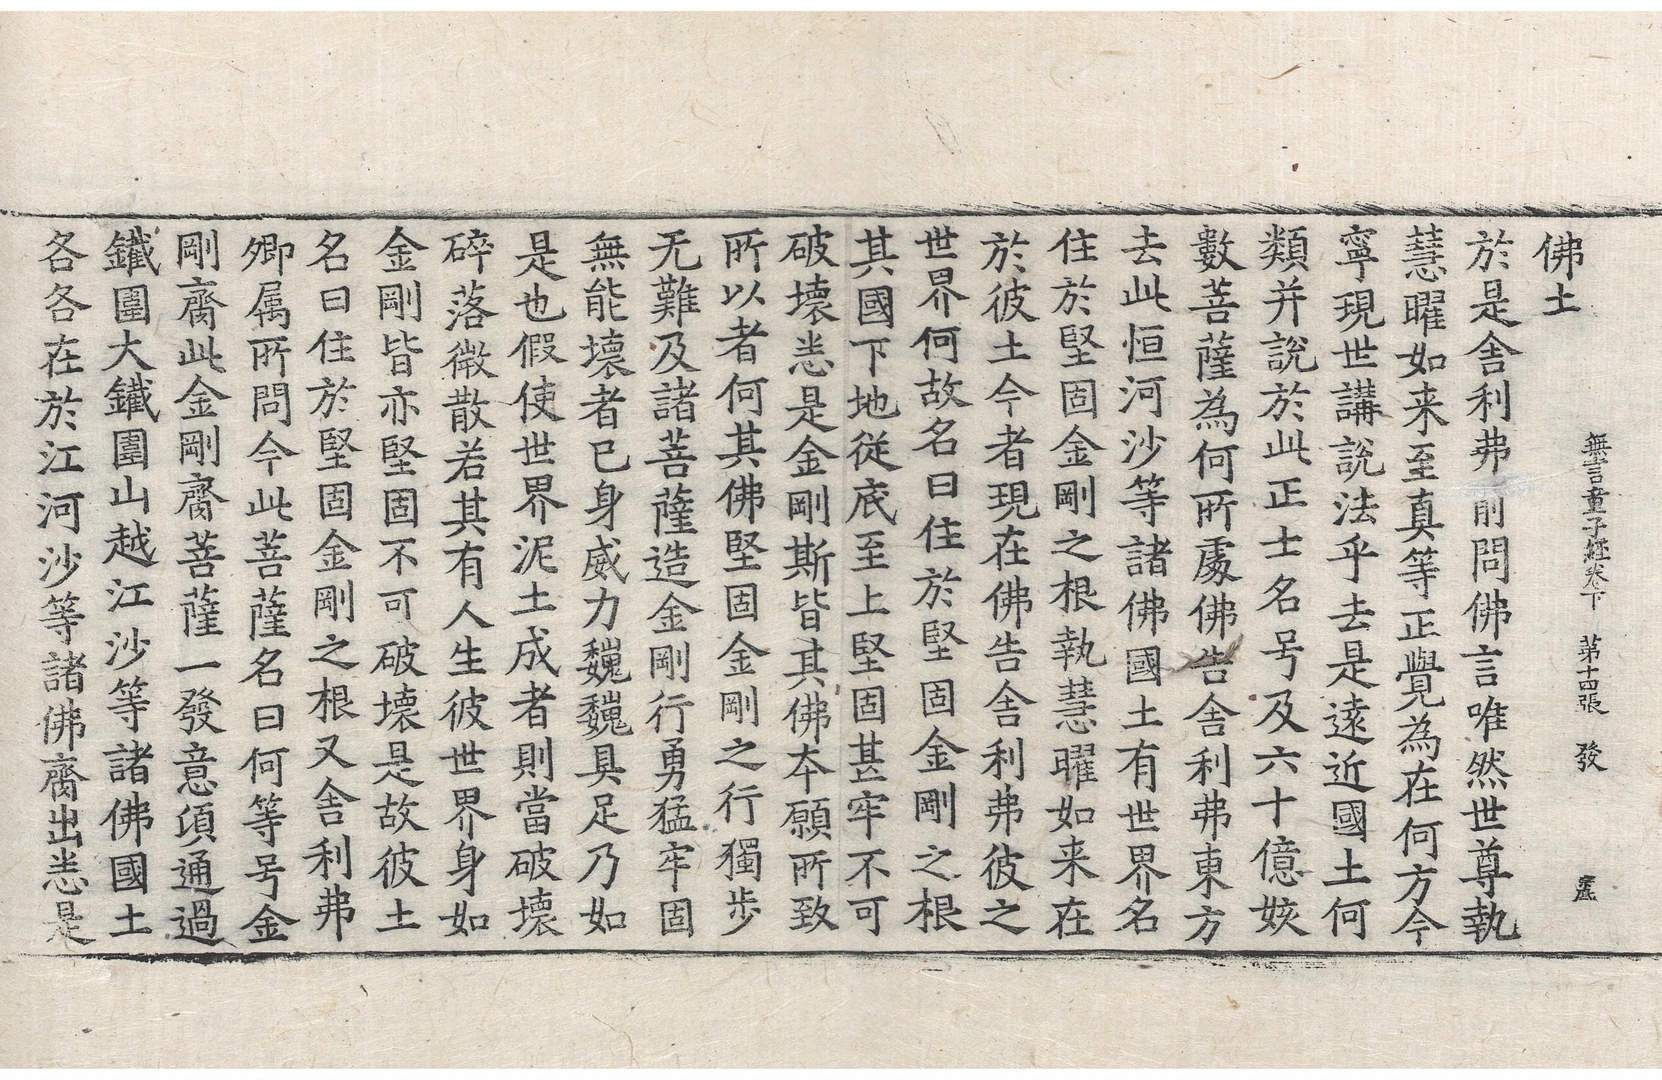 無言童子經卷下　第十四張　發
佛土
於是舍利弗前問佛言唯然世尊執
慧曜如来至真等正覺為在何方今
寧現世講說法乎去是遠近國土何
類并說於此正士名号及六十億姟
數菩薩為何所處佛告舍利弗東方
去此恒河沙等諸佛國土有世界名
住於堅固金剛之根執慧曜如来在
於彼土今者現在佛告舍利弗彼之
世界何故名曰住於堅固金剛之根
其國下地從底至上堅固甚牢不可
破壞悉是金剛斯皆其佛夲願所致
所以者何其佛堅固金剛之行獨步
无難及諸菩薩造金剛行勇猛牢固
無能壞者已身威力巍巍具足乃如
是也假使世界泥土成者則當破壞
碎落微散若其有人生彼世界身如
金剛皆亦堅固不可破壞是故彼土
名曰住於堅固金剛之根又舍利弗
卿属所問今此菩薩名曰何等号金
剛齎此金剛齎菩薩一發意頃通過
鐵圍大鐵圍山越江沙等諸佛國土
各各在於江河沙等諸佛齎出悉是